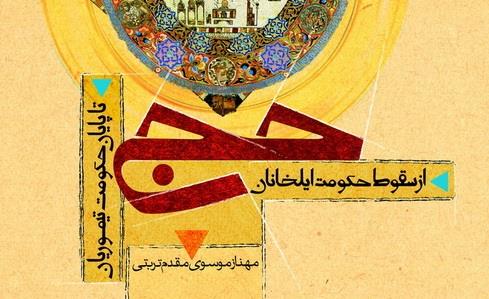 حج
از سقوط حکومت ایلخانان
تا پایان حکومت تیموریان
مهناز موسوی مقدم تربتی